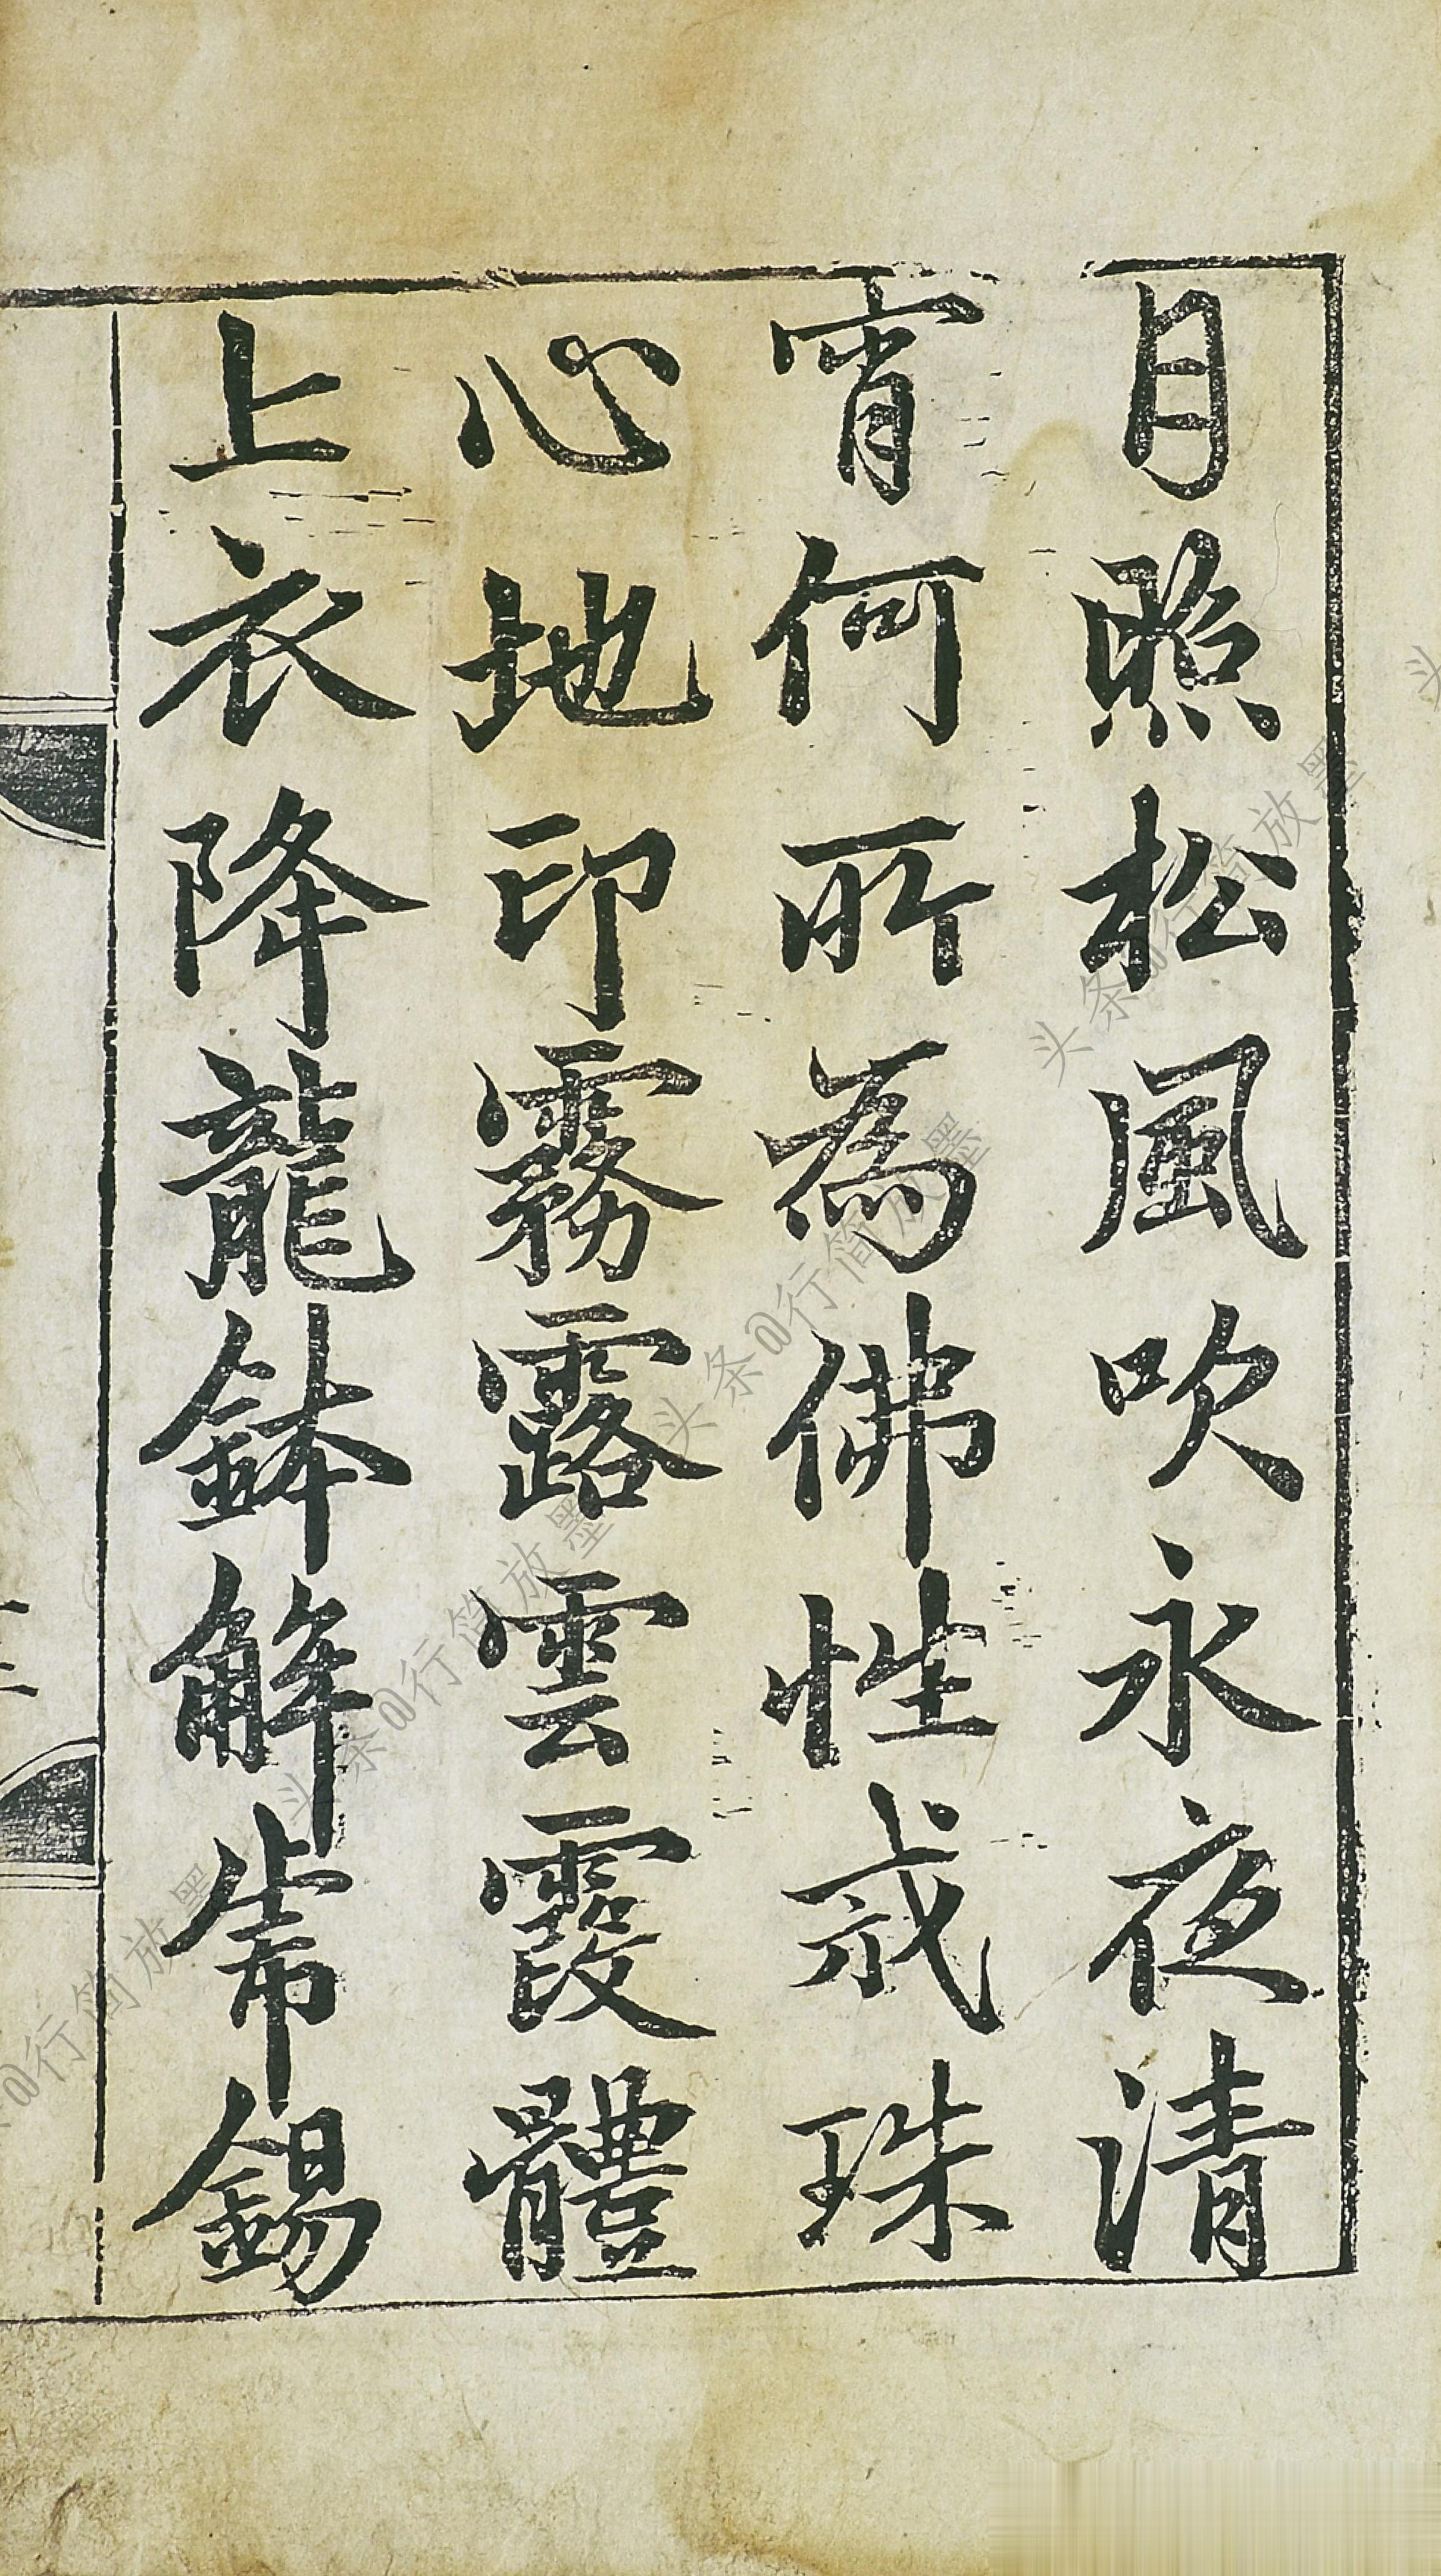 月照松風吹永夜清
宵何所為佛性戒珠
心地印霧露雲霞體
上衣降龍鉢解虎錫
头条@行简放墨
头条@行简放墨
头条@行简放墨
@行简放墨
头